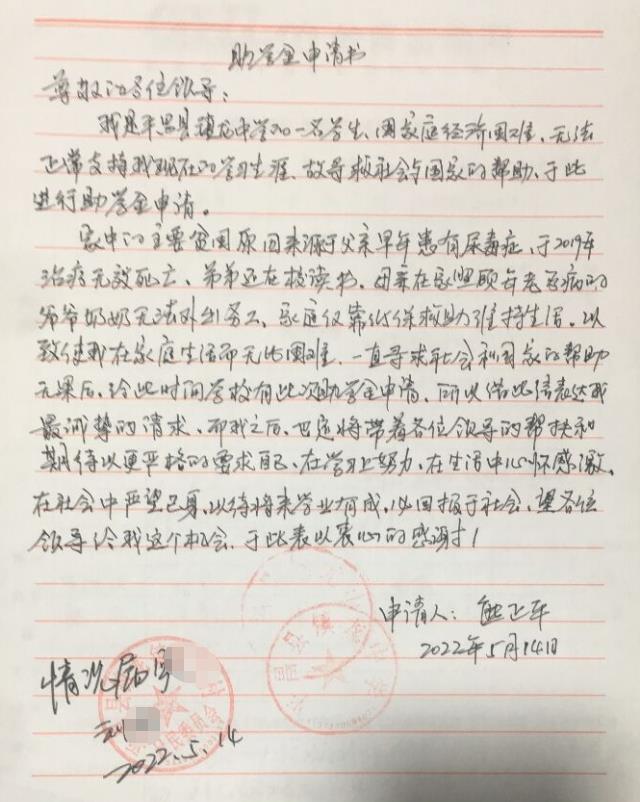 助学金申请书
尊敬的各位领导：
我是平昌县镇龙中学的一名学生、因家庭经济困难、无法
正常支持我现在的学习生涯、故寻求社会与国家的帮助、于此
进行助学金申请。
家中的主要贫困原因来源于父亲早年患有尿毒症、于2019年
治疗无效死亡、弟弟还在校读书、母亲在家照顾年老多病的
爷爷奶奶无法外出务工、家庭仅靠低保救助维持生活。以
致使我在家庭生活而无比困难、一直寻求社会和国家的帮助
无果后、恰此时间学校有此次助学金申请、所以借此信表达我
最诚挚的请求、而我之后、也定将带着各位领导的帮扶和
期待以更严格的要求自己、在学习上努力、在生活中心怀感激、
在社会中严望己身、以待将来学业有成、必回报于社会、望各位
领导给我这个机会、于此表以衷心的感谢！
申请人：熊正军
2022年5月14日
情况属实
2022.5.14
昌县镇龙中学
县 村民委员会